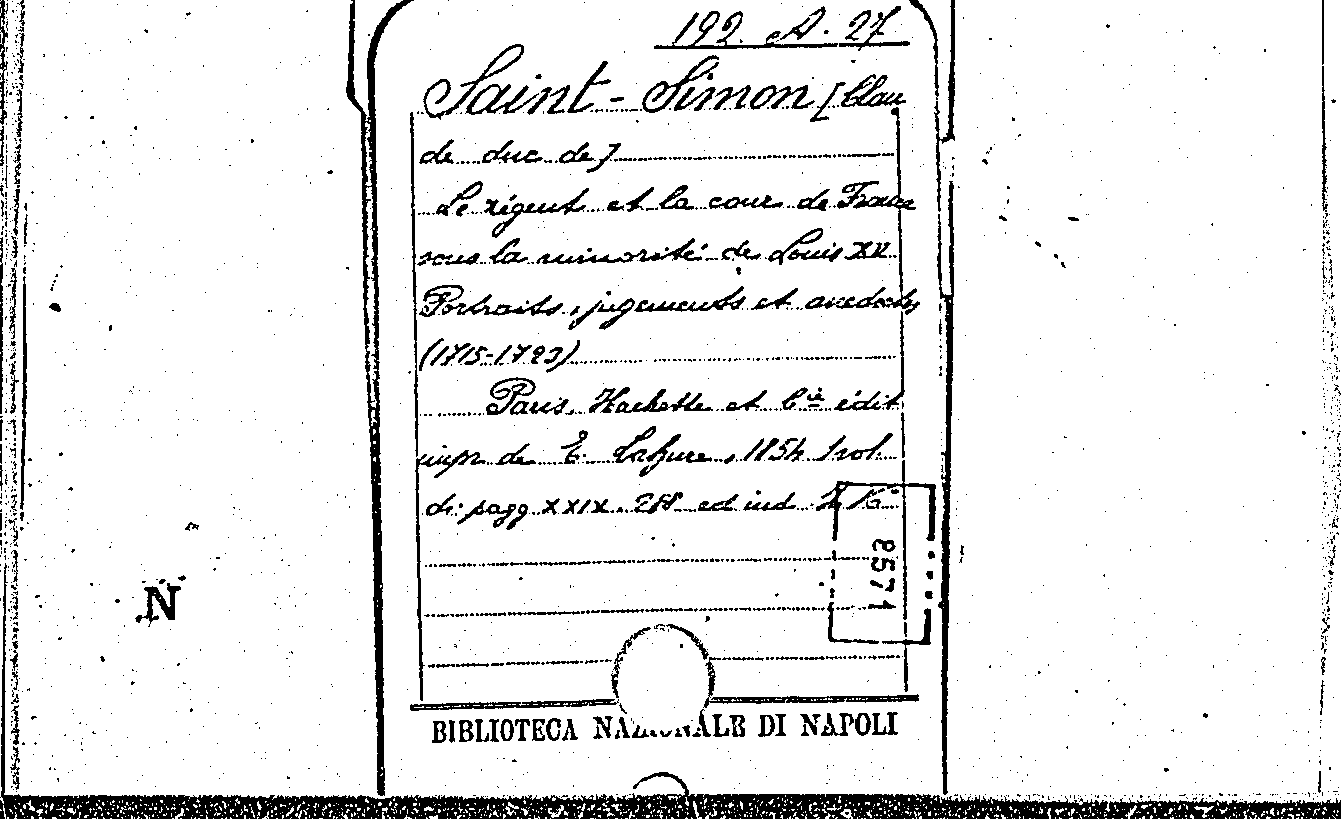 192. A. 27
Saint-Simon [Clau
de duc de]
Le régent et la cour de France
sous la minorité de Louis XV
Portraits, jugements et anecdotes
(1715-1723)
Paris, Hachette et C.ie édit
impr de E. Lahure, 1854 1 vol.
di pagg XXIX. ed ind
8571
N
BIBLIOTECA NAZIONALE DI NAPOLI